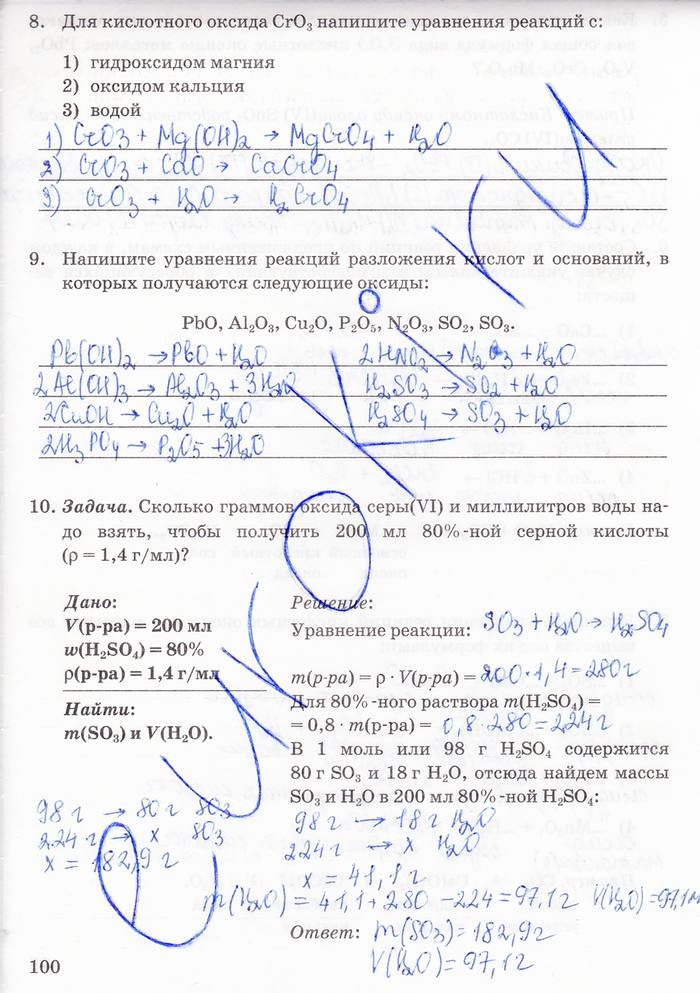 8. Для кислотного оксида CrO₃ напишите уравнения реакций с:
1) гидроксидом магния
2) оксидом кальция
3) водой
1) CrO3 + Mg(OH)2 → MgCrO4 + H2O
2) CrO3 + CaO → CaCrO4
3) CrO3 + H2O → H2CrO4
9. Напишите уравнения реакций разложения кислот и оснований, в
которых получаются следующие оксиды:
PbO, Al₂O₃, Cu₂O, P₂O₅, N₂O₃, SO₂, SO₃.
Pb(OH)2 → PbO + H2O 2HNO2 → N2O3 + H2O
2Al(OH)3 → Al2O3 + 3H2O H2SO3 → SO2 + H2O
2CuOH → Cu2O + H2O H2SO4 → SO3 + H2O
2H3PO4 → P2O5 + 3H2O
10. Задача. Сколько граммов оксида серы(VI) и миллилитров воды на-
до взять, чтобы получить 200 мл 80%-ной серной кислоты
(ρ = 1,4 г/мл)?
Дано:
V(р-ра) = 200 мл
w(H₂SO₄) = 80%
ρ(р-ра) = 1,4 г/мл
Найти:
m(SO₃) и V(H₂O).
Решение:
Уравнение реакции: SO3 + H2O → H2SO4
m(р-ра) = ρ · V(р-ра) = 200 · 1,4 = 280 г
Для 80%-ного раствора m(H₂SO₄) =
= 0,8 · m(р-ра) = 0,8 · 280 = 224 г
В 1 моль или 98 г H₂SO₄ содержится
80 г SO₃ и 18 г H₂O, отсюда найдем массы
SO₃ и H₂O в 200 мл 80%-ной H₂SO₄:
98 г → 80 г SO3
224 г → x SO3
x = 182,9 г
98 г → 18 г H2O
224 г → x H2O
x = 41,1 г
m(H2O) = 41,1 + 280 - 224 = 97,1 г V(H2O) = 97,1 м
Ответ: m(SO3) = 182,9 г
V(H2O) = 97,1 г
100